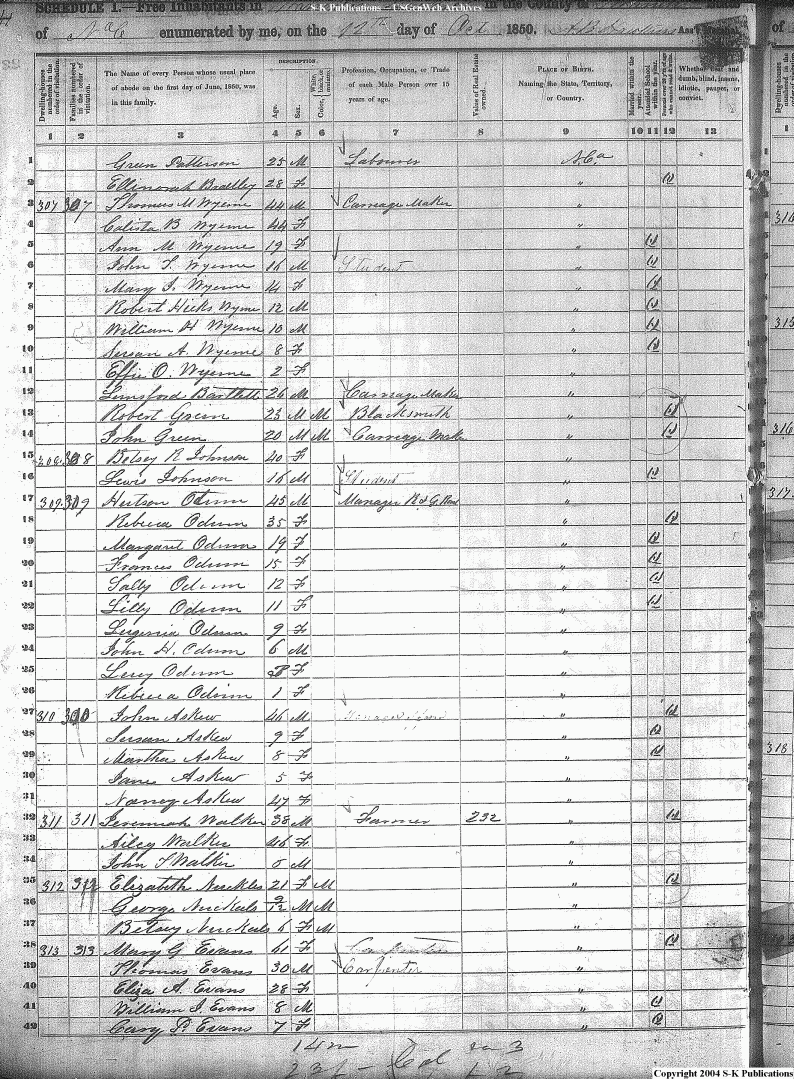 S-K Publications - USGenWeb Archives
SCHEDULE I.—Free Inhabitants in in the County of State
of N Ca enumerated by me, on the 12th day of Oct 1850. Ass't Marshal.
Dwelling-houses numbered in the order of visitation.
Families numbered in the order of visitation.
The Name of every Person whose usual place of abode on the first day of June, 1850, was in this family.
DESCRIPTION.
Age.
Sex.
Color,
Profession, Occupation, or Trade of each Male Person over 15 years of age.
Value of Real Estate owned.
PLACE OF BIRTH. Naming the State, Territory, or Country.
Married within the year.
Attended School within the year.
Whether deaf and dumb, blind, insane, idiotic, pauper, or convict.
1 2 3 4 5 6 7 8 9 10 11 12 13
1 Green Patterson 25 M Labourer N. Ca
2 Ellenorah Bradley 28 F " (1)
3 307 307 Thomas M Wyerne 44 M Carreage Maker "
4 Calista B Wyerne 44 F "
5 Ann M Wyerne 19 F " (1)
6 John T. Wyerne 16 M Student " (1)
7 Mary J. Wyerne 14 F " (1)
8 Robert Hicks Wyrne 12 M " (1)
9 William H Wyerne 10 M " (1)
10 Susan A. Wyerne 8 F " (1)
11 Effie O. Wyerne 2 F "
12 Lunsford Bartlett 26 M Carreage Maker "
13 Robert Green 23 M M Blacksmith " (1)
14 John Green 20 M M Carreage Make " (1)
15 308 Betsey R Johnson 40 F "
16 Lewis Johnson 16 M Student " (1)
17 309 309 Hutson Odum 45 M Manager R & G. "
18 Rebecca Odum 35 F " (1)
19 Margaret Odum 19 F " (1)
20 Frances Odum 15 F " (1)
21 Sally Odum 12 F " (1)
22 Lilly Odum 11 F " (1)
23 Lugenia Odum 9 F "
24 John H. Odum 6 M "
25 Odum F "
26 Rebecca Odum 1 F "
27 310 310 John Askew 46 M " (1)
28 Susan Askew 9 F " (1)
29 Martha Askew 8 F " (1)
30 Jane Askew 5 F "
31 Nancy Askew 47 F "
32 311 311 Jeremiah Walker 38 M Farmer 232 " (1)
33 Ailey Walker 46 F "
34 John T Walker M "
35 312 312 Elizabeth Nuckles 21 F M " (1)
36 George Nuckels 9/12 M M "
37 Betsey Nuckels 6 F M "
38 313 313 Mary G Evans 61 F " (1)
39 Thomas Evans 30 M Carpenter "
40 Eliza A. Evans 28 F "
41 William J. Evans 8 M " (1)
42 Cary P. Evans 7 F " (1)
14 m Col m 3
Copyright 2004 S-K Publications